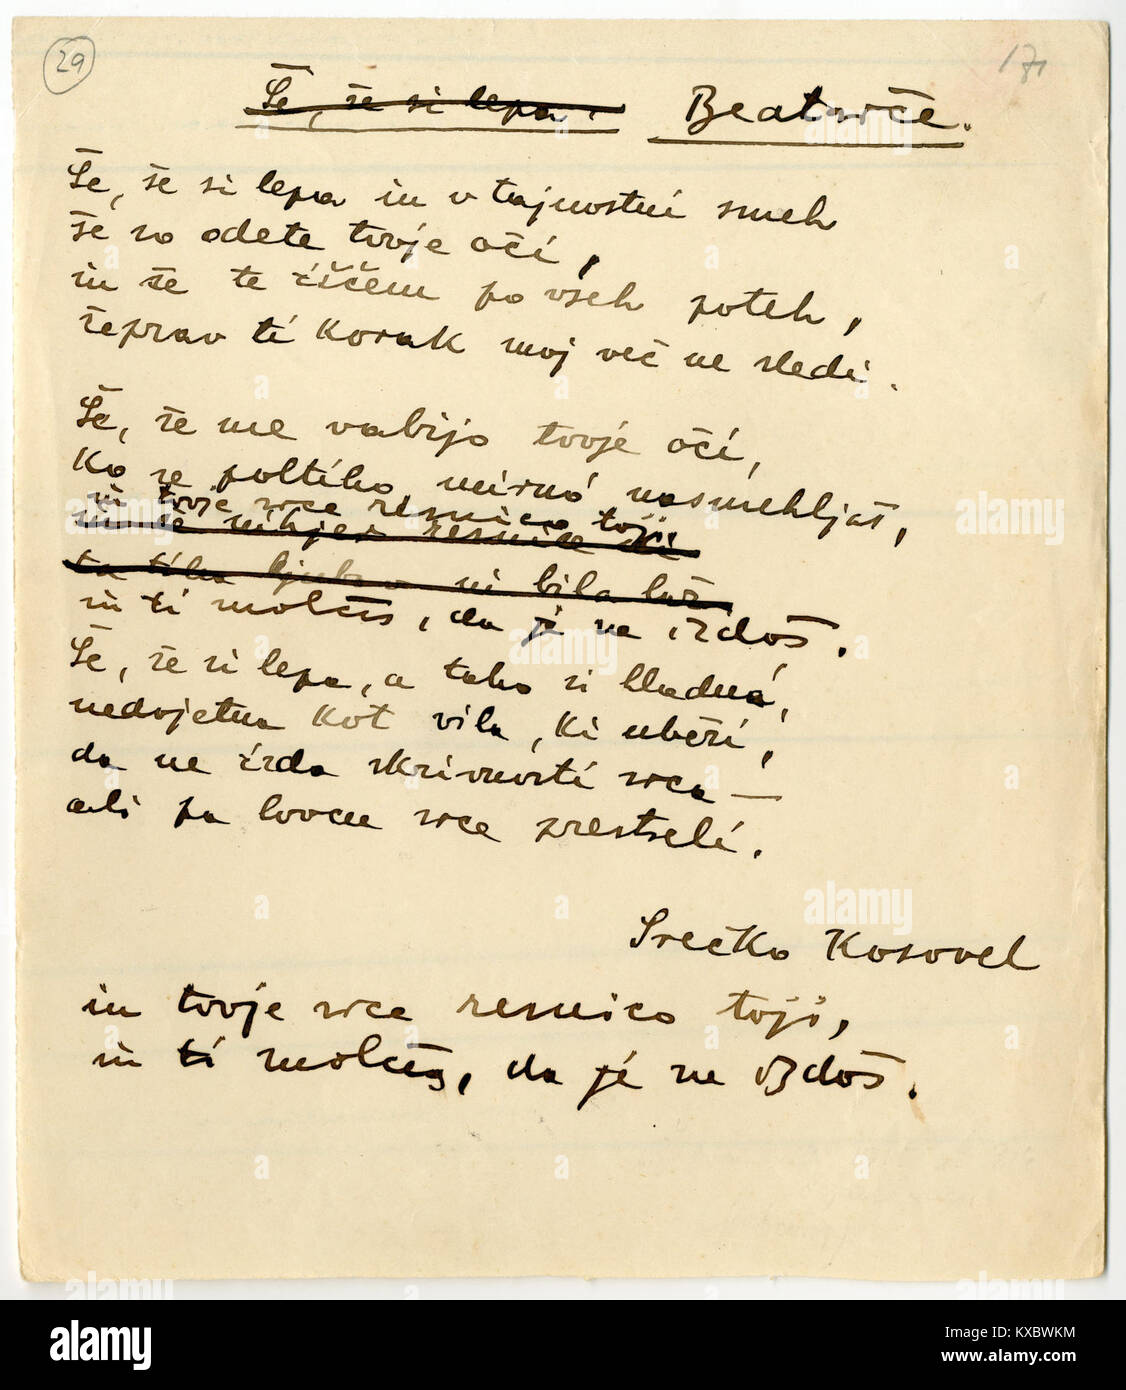 29
171
Še, še si lepa. Beatrče.
Še, še si lepa in v tajnostni smeh
še so odete tvoje oči,
in še te iščem po vseh poteh,
čeprav ti korak moj več ne sledi.
Še, še me vabijo tvoje oči,
ko se poltiho, mirnó nasmehljaš,
in tvoje srce resnico toji
in še nikjer resnice ni
ta tiha ljubav ni bila laž
in ti molčiš, da je ne izdaš.
Še, še si lepa, a tako si hladná,
nedojetna kot vila, ki ubeži,
da ne izda skrivnosti srca —
ali pa lovcu srce prestreli.
Srečko Kosovel
in tvoje srce resnico toji,
in ti molčiš, da je ne izdaš.
alamy
Image ID: KXBWKM
www.alamy.com